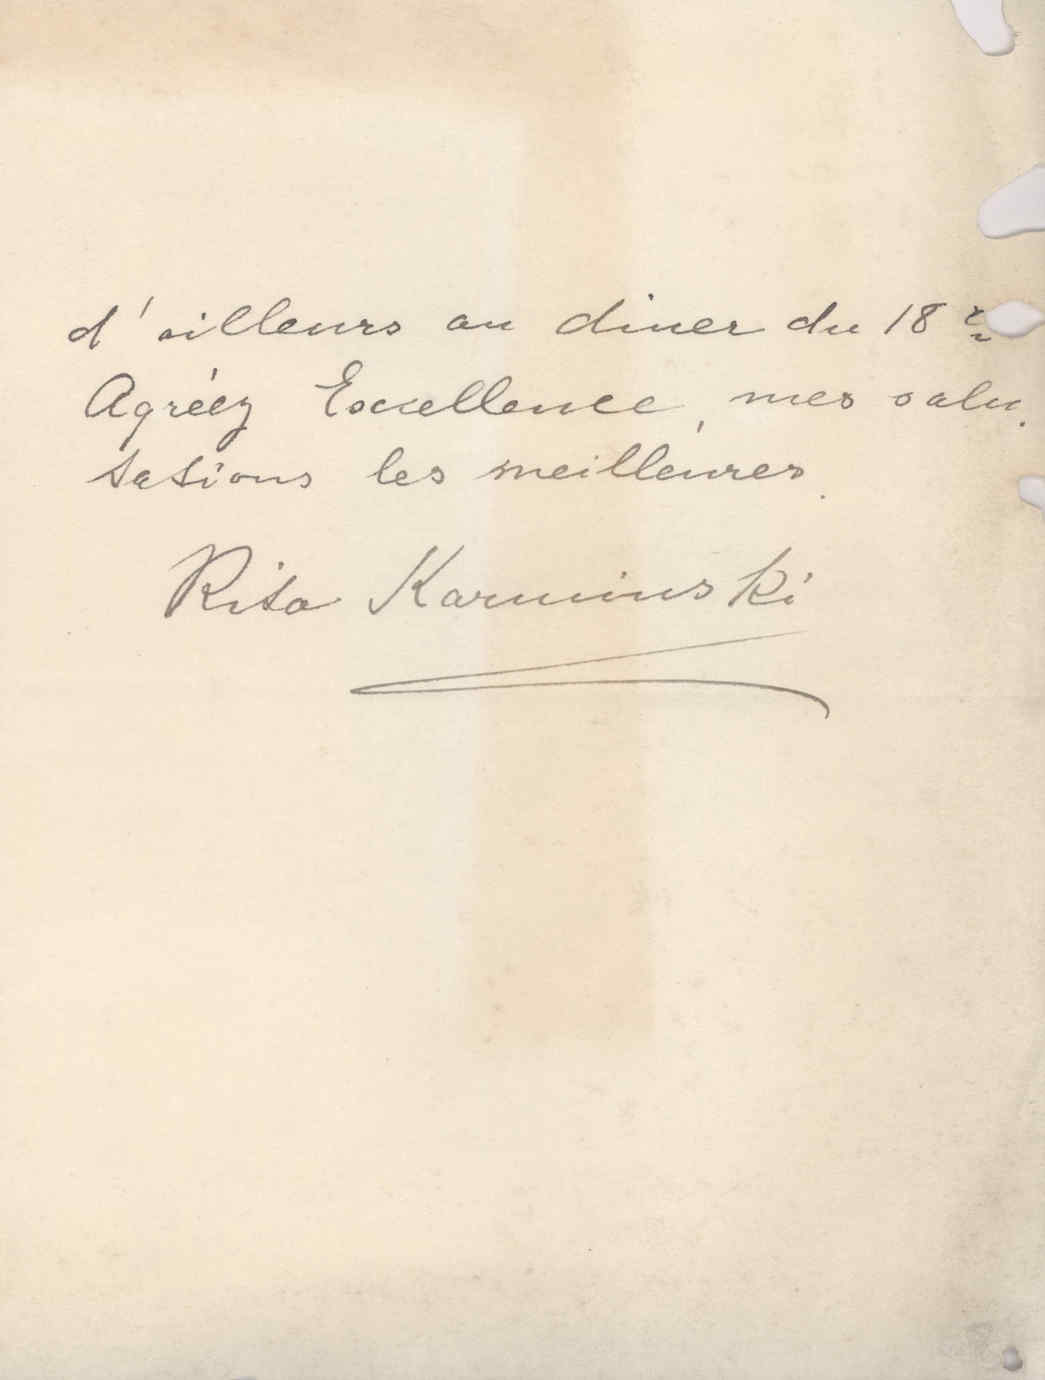 d'ailleurs au diner du 18
Agréez Excellence, mes salu
tations les meilleures.
Rita Karminski